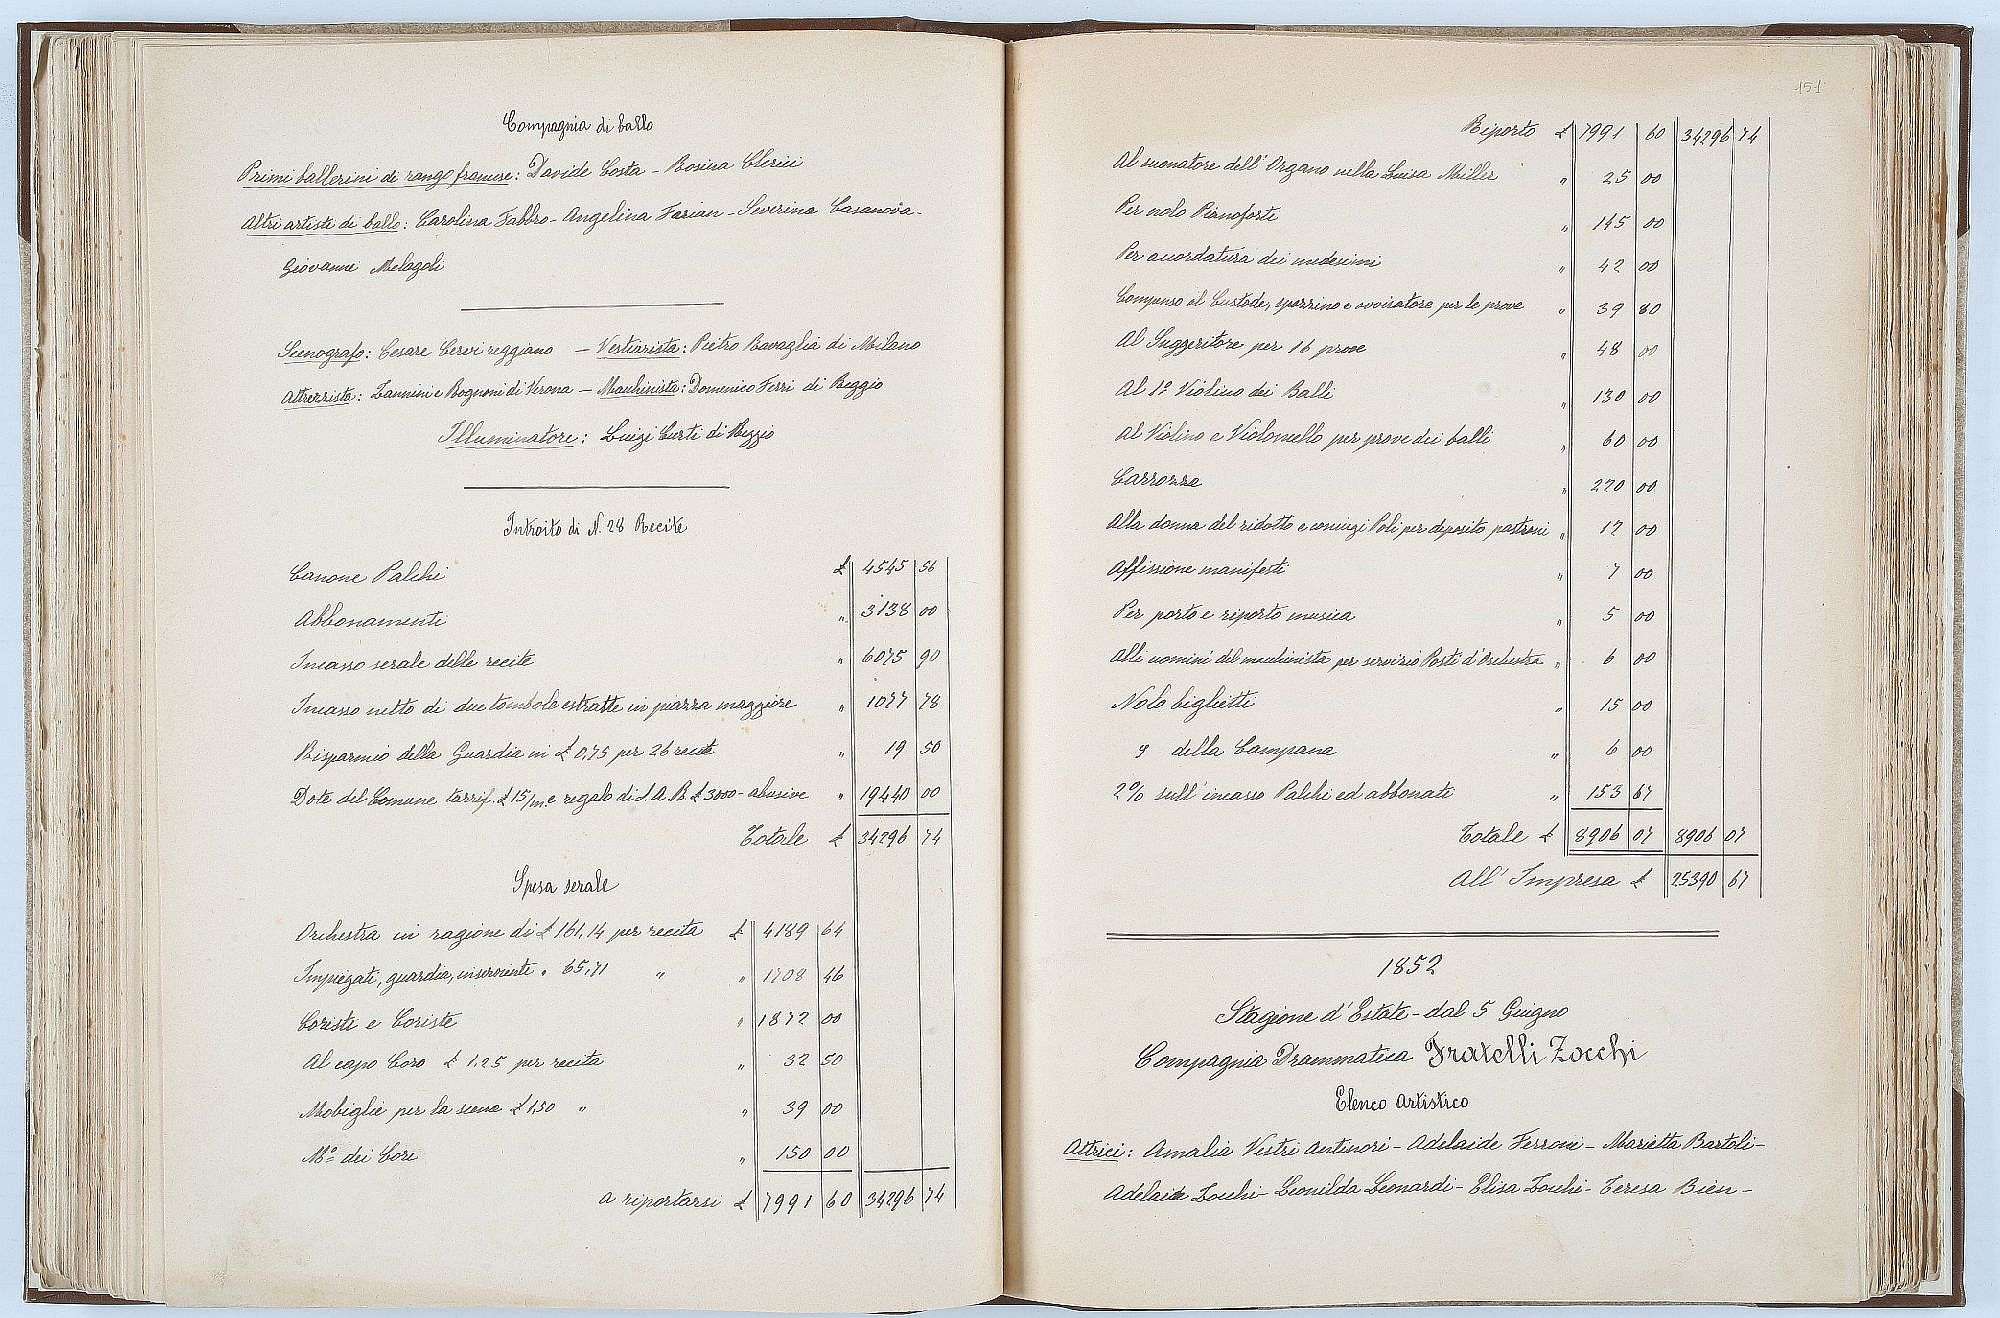 Compagnia di ballo
Primi ballerini di rango francese: Davide Costa - Rosina Clerici
Altri artisti di ballo: Carolina Fabbro - Angelina Farian - Severina Casanova -
Giovanni Melagoli
Scenografo: Cesare Cervi reggiano - Vestiarista: Pietro Ravaglia di Milano
Attrezzista: Zannini e Rognoni di Verona - Macchinista: Domenico Ferri di Reggio
Illuminatore: Luigi Curti di Reggio
Introito di N. 28 Recite
Canone Palchi £ 4545 56
Abbonamenti " 3138 00
Incasso serale delle recite " 6075 90
Incasso netto di due tombole estratte in piazza maggiore " 1077 78
Risparmio della Guardia in £ 0,75 per 26 recite " 19 50
Dote del Comune tarrif. £ 15/m. e regalo di S.A.R. £ 3000 - abusive " 19440 00
Totale £ 34296 74
Spesa serale
Orchestra in ragione di £ 161,14 per recita £ 4189 64
Impiegati, guardia, inserviente " 65,71 " " 1708 46
Coristi e Coriste " 1872 00
Al capo Coro £ 1.25 per recita " 32 50
Mobiglie per la scena £ 1,50 " " 39 00
M.o dei Cori " 150 00
a riportarsi £ 7991 60 34296 74
151
Riporto £ 7991 60 34296 74
Al suonatore dell'Organo nella Luisa Miller " 25 00
Per nolo Pianoforti " 145 00
Per accordatura dei medesimi " 42 00
Compenso al Custode, spazzino e avvisatore per le prove " 39 80
Al Suggeritore per 16 prove " 48 00
Al 1° Violino dei Balli " 130 00
Al Violino e Violoncello per prove dei balli " 60 00
Carrozza " 220 00
Alla donna del ridotto e coniugi Poli per deposito pastrani " 12 00
Affissione manifesti " 7 00
Per porto e riporto musica " 5 00
Alli uomini del macchinista per servizio Posti d'Orchestra " 6 00
Nolo biglietti " 15 00
" della Campana " 6 00
2% sull'incasso Palchi ed abbonati " 153 67
Totale £ 8906 07 8906 07
All'Impresa £ 25390 67
1852
Stagione d'Estate - dal 5 Giugno
Compagnia Drammatica Fratelli Zocchi
Elenco Artistico
Attrici: Amalia Vestri Antinori - Adelaide Ferroni - Marietta Bartoli -
Adelaide Zocchi - Leonilda Leonardi - Elisa Zocchi - Teresa Bien -